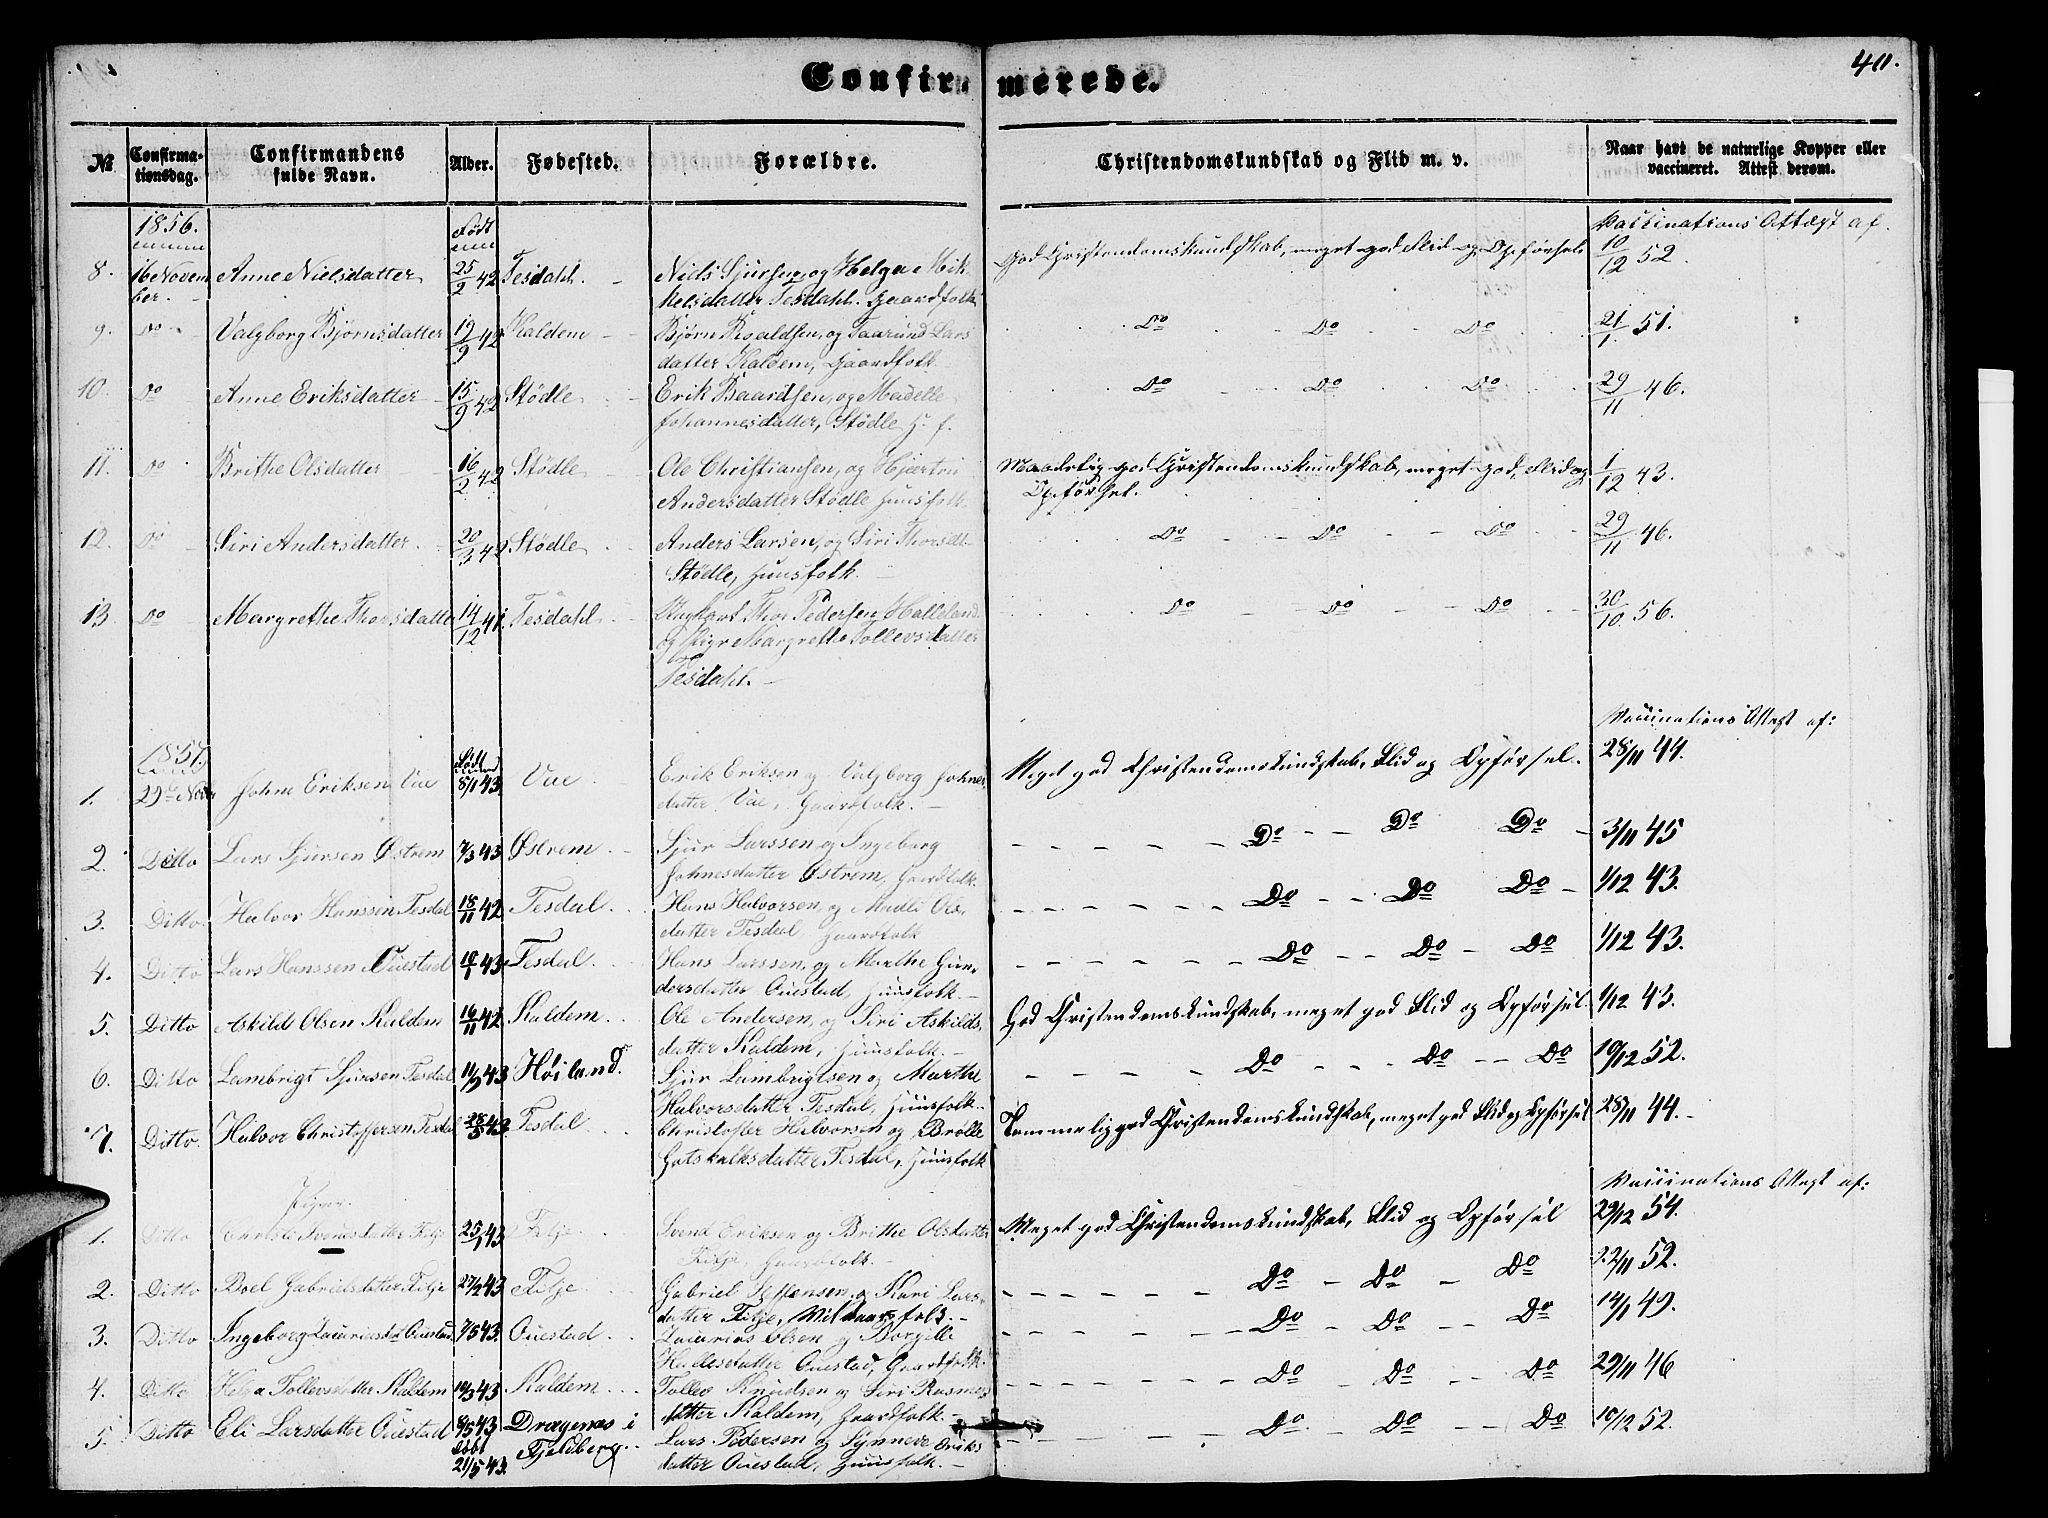 Confirmerede.
40.
№ Confirmationsdag. Confirmandens fulde Navn. Alder. Fødested. Forældre. Christendomskundskab og Flid m. v. Naar havt de naturlige Kopper eller vaccineret. Attest derom.
1856. Født Vaccinations Attest af.
8. 16 Novem Anne Nielsdatter 25/2 42 Tesdahl. Niels Sjursen, og Helga Mik God Christendomskundskab, meget god Flid og Opførsel. 10/12 52.
ber. kelsdatter Tesdahl. Gaardfolk
9. Do Valgborg Bjørnsdatter 19/9 42 Kaldem Bjørn og Taarund Lars Do Do Do 21/1 51.
datter Kaldem, Gaardfolk
10. Do Anne Eriksdatter 15/9 42 Stødle Erik Baardsen, og Madelle Do Do Do 29/11 46.
Johannesdatter, Stødle H. f.
11. Do Brithe Olsdatter 16/2 42 Stødle Ole Christiansen, og Hjertru Maadelig god Christendomskundskab, meget god, Flid og 1/12 43.
Andersdatter Stødle Huusfolk Opførsel.
12. Do Siri Andersdatter 20/3 42 Stødle Anders Larsen, og Siri Thorsdt. Do Do Do 29/11 46.
Stødle, Huusfolk.
13. Do Margrethe Thorsdatter 14/12 41. Tesdahl Ungkarl Thor Pedersen Halleland Do Do Do 30/10 56.
og Pige Margrethe Tollevsdatter
Tesdahl.
Vaccinations Attest af:
1857. Født
1. 29de Novbr Johne Eriksen Vae 8/1 43. Vae. Erik Eriksen og Valgborg Johnes Meget god Christendomskundskab, Flid og Opførsel. 28/11 44.
datter Vae, Gaardfolk.
2. Ditto Lars Sjursen Østrem 7/3 43 Østrem Sjur Larssen og Ingeborg Do Do Do 3/11 45
Johnesdatter Østrem, Gaardfolk.
3. Ditto. Halvor Hanssen Tesdal 18/11 42 Tesdal. Hans Halvorsen, og Madli Ols Do Do Do 1/12 43.
datter Tesdal Gaardfolk
4. Ditto Lars Hanssen Ouestad 10/1 43. Tesdal. Hans Larssen, og Marthe Gun Do Do Do 1/12 43.
dersdatter Ouestad, Huusfolk.
5. Ditto Askild Olsen Kaldem 16/11 42 Kaldem. Ole Andersen, og Siri Askilds God Christendomskundskab, meget god Flid og Opførsel. 1/12 43.
datter Kaldem, Huusfolk.
6. Ditto Lambrigt Sjursen Tesdal 11/9 43 Høiland. Sjur Lambrigtsen og Marthe Do Do Do 10/12 52.
Halvorsdatter Tesdal, Huusfolk.
7. Ditto. Halvor Christoffersen Tesdal 28/8 43. Tesdal. Christoffer Halvorsen og Brølle Temmelig god Christendomskundskab, meget god Flid og Opførsel 28/11 44.
Gotskalksdatter Tesdal, Huusfolk
Piger. Vaccinations Attest af:
1. Ditto Christe Svensdatter Fitje 25/1 43 Fitje Svend Eriksen og Brithe Olsdatter Meget god Christendomskundskab, Flid og Opførsel 29/12 54.
Fitje, Gaardfolk.
2. Ditto Boel Gabrielsdatter Fitje 27/2 43 Fitje Gabriel Steffensen, og Kari Lars Do Do Do 22/11 52.
datter Fitje, folk.
3. Ditto Ingeborg Zacariasdtr Ouestad 7/5 43. Ouestad Zacarias Olsen og Borgille Do Do Do 14/1 49.
datter Ouestad, Gaardfolk.
4. Ditto Helga Tollevsdatter Kaldem 10/3 43 Kaldem Tollev Knudsen og Siri Rasmus Do Do Do 29/11 46
datter Kaldem, Gaardfolk.
5. Ditto Eli Larsdatter Ouestad 8/5 43 Dragenæs i Lars Pedersen og Synneve Eriks Do Do Do 10/12 52.
Døbt 21/5 43. Fjeldberg datter Ouestad, Huusfolk.